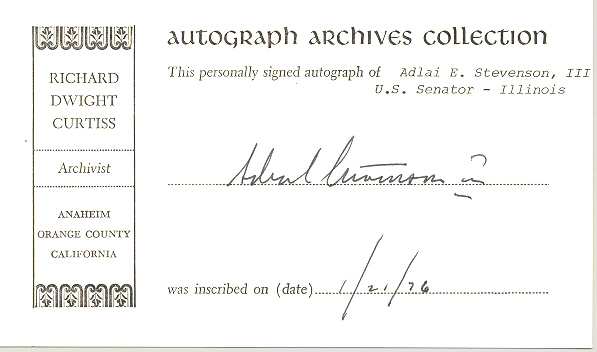 AUTOGRAPH ARCHIVES COLLECTION
RICHARD
DWIGHT
CURTISS
Archivist
ANAHEIM
ORANGE COUNTY
CALIFORNIA
This personally signed autograph of Adlai E. Stevenson, III
U.S. Senator - Illinois
Adlai Stevenson III
was inscribed on (date) 1/21/76